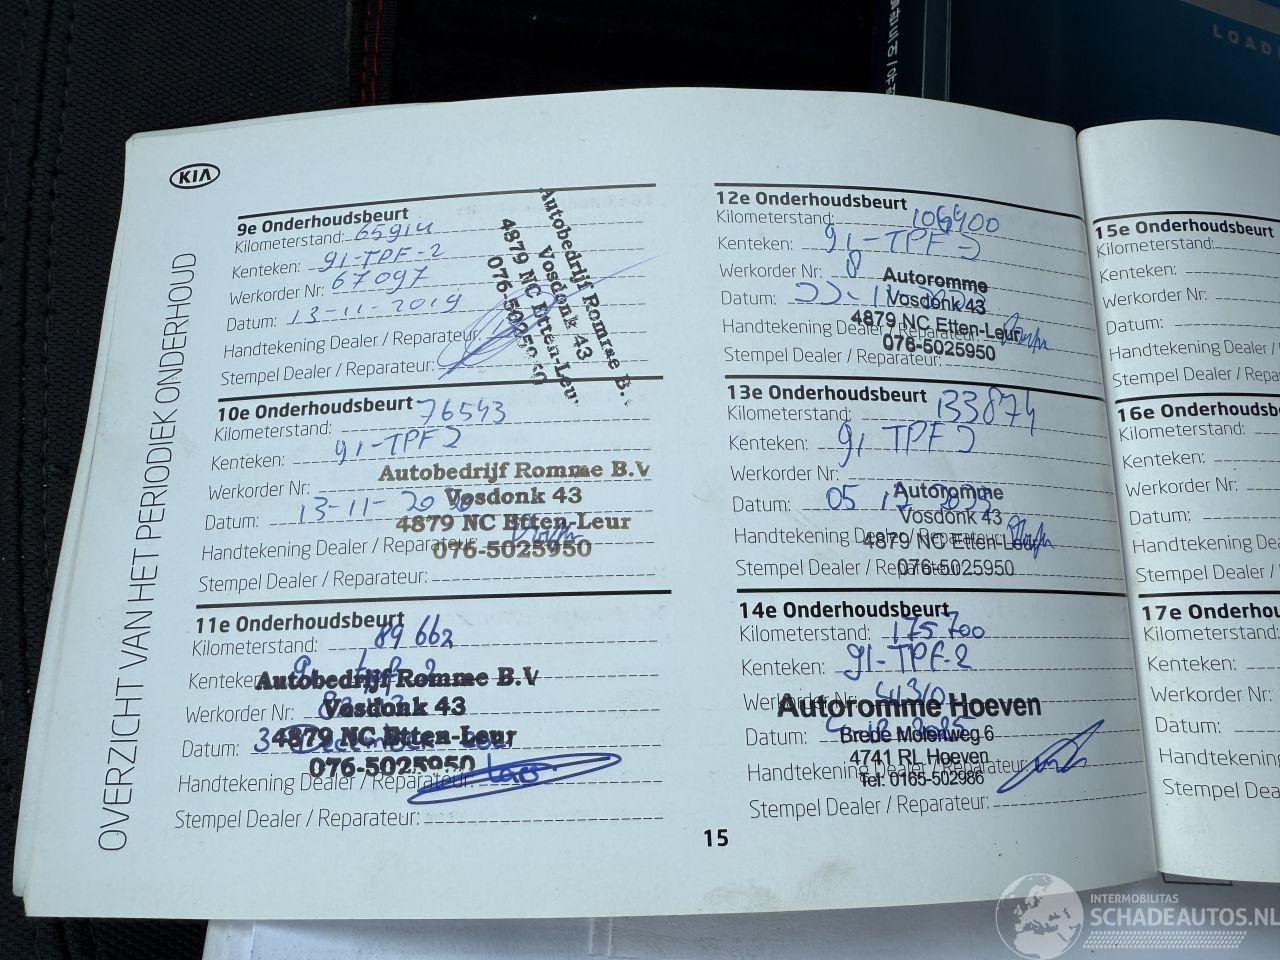 LOAD
KIA
OVERZICHT VAN HET PERIODIEK ONDERHOUD
9e Onderhoudsbeurt
Kilometerstand: 65914
Kenteken: 91-TPF-2
Werkorder Nr: 67097
Datum: 13-11-2019
Handtekening Dealer / Reparateur:
Stempel Dealer / Reparateur:
Autobedrijf Romme B.V
Vosdonk 43
4879 NC Etten-Leur
076-5025950
10e Onderhoudsbeurt
Kilometerstand: 76543
Kenteken: 91-TPF 2
Werkorder Nr:
Datum: 13-11-2020
Handtekening Dealer / Reparateur:
Stempel Dealer / Reparateur:
Autobedrijf Romme B.V
Vosdonk 43
4879 NC Etten-Leur
076-5025950
11e Onderhoudsbeurt
Kilometerstand: 89662
Kenteken:
Werkorder Nr:
Datum: 3
Handtekening Dealer / Reparateur:
Stempel Dealer / Reparateur:
Autobedrijf Romme B.V
Vosdonk 43
4879 NC Etten-Leur
076-5025950
12e Onderhoudsbeurt
Kilometerstand: 106400
Kenteken: 91-TPF 2
Werkorder Nr: 8
Datum: 22-11
Handtekening Dealer / Reparateur:
Stempel Dealer / Reparateur:
Autoromme
Vosdonk 43
4879 NC Etten-Leur
076-5025950
13e Onderhoudsbeurt
Kilometerstand: 133874
Kenteken: 91 TPF 2
Werkorder Nr:
Datum: 05
Handtekening Dealer / Reparateur:
Stempel Dealer / Reparateur:
Autoromme
Vosdonk 43
4879 NC Etten-Leur
076-5025950
14e Onderhoudsbeurt
Kilometerstand: 175700
Kenteken: 91-TPF-2
Werkorder Nr:
Datum:
Handtekening Dealer / Reparateur:
Stempel Dealer / Reparateur:
Autoromme Hoeven
Brede Molenweg 6
4741 RL Hoeven
Tel. 0165-502986
15
15e Onderhoudsbeurt
Kilometerstand:
Kenteken:
Werkorder Nr:
Datum:
Handtekening Dealer /
Stempel Dealer /
16e Onderhoudsb
Kilometerstand:
Kenteken:
Werkorder Nr:
Datum:
Handtekening Dealer
Stempel Dealer /
17e Onderhou
Kilometerstand:
Kenteken:
Werkorder Nr:
Datum:
Handtekening
Stempel Dea
INTERMOBILITAS
SCHADEAUTOS.NL